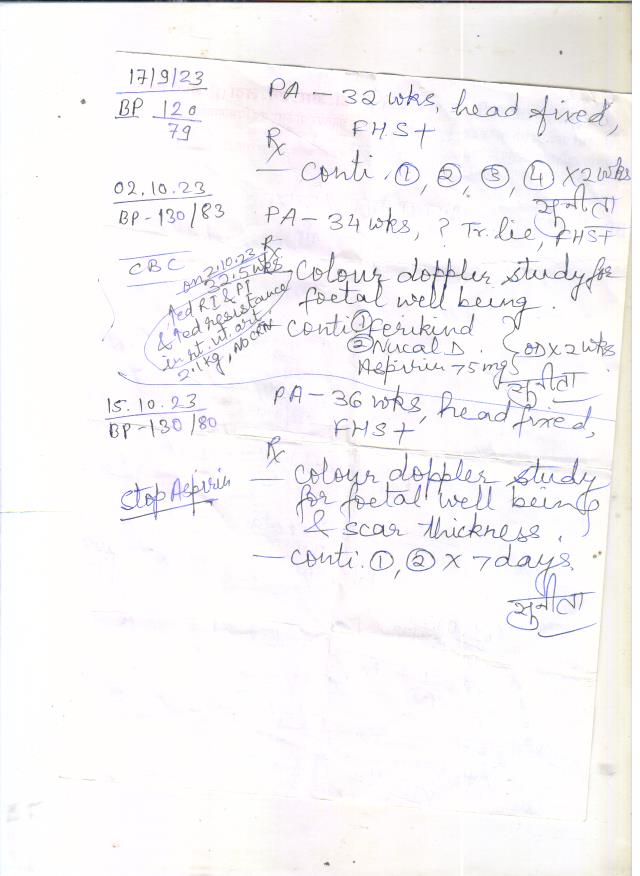 17/9/23
BP 120
79
PA - 32 wks, head fixed,
FHS+
Rx
- conti. ①, ②, ③, ④ X 2 wks
सुनीता
02.10.23
BP - 130/83
PA - 34 wks, ? Tr. lie, FHS+
CBC
Rx
Colour doppler study for
foetal well being.
on 2.10.23
32.5 wks
↑ed RI & PI
& ↑ed resistance
in rt. ut. art.
2.1 kg, No
- conti ① Ferikind
② Nucal D
Aspirin 75 mg
OD X 2 wks
सुनीता
15.10.23
BP - 130/80
PA - 36 wks, head fixed,
FHS+
Rx
Stop Aspirin
- colour doppler study
for foetal well being
& scar thickness.
- conti. ①, ② X 7 days.
सुनीता